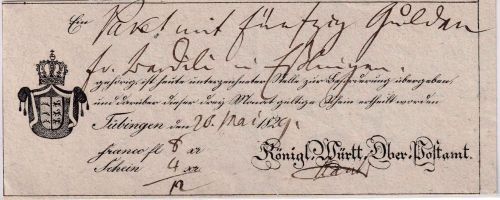 Ein Paket mit fünfzig Gulden
fr. Bardili in Esslingen.
gehörig, ist heute unterzeichneter Stelle zur Beförderung übergeben,
und darüber dieser drey Monat geltige Schein ertheilt worden
Tübingen den 20. Mai 1829.
franco fl 8 xr
Schein 4 xr
12
Königl. Württ. Ober-Postamt.